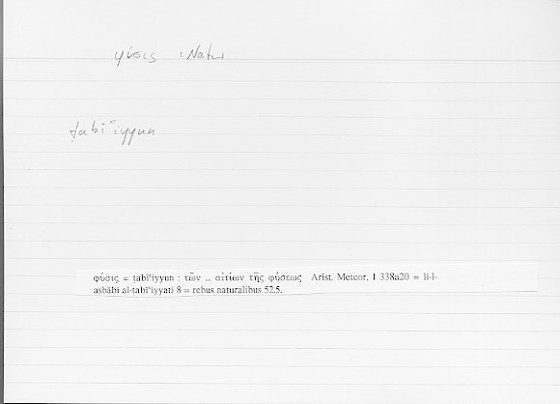 φύσις : Natur
ṭabīʿiyyun
φύσις = ṭabīʿiyyun : τῶν ... αἰτίων τῆς φύσεως Arist. Meteor. I 338a20 = li-l-
asbābi al-ṭabīʿiyyati 8 = rebus naturalibus 52.5.